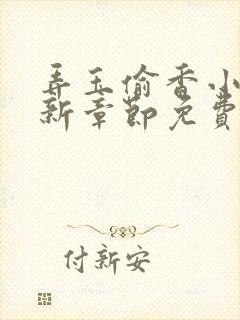 弄玉偷香小
新章節免費
付新安